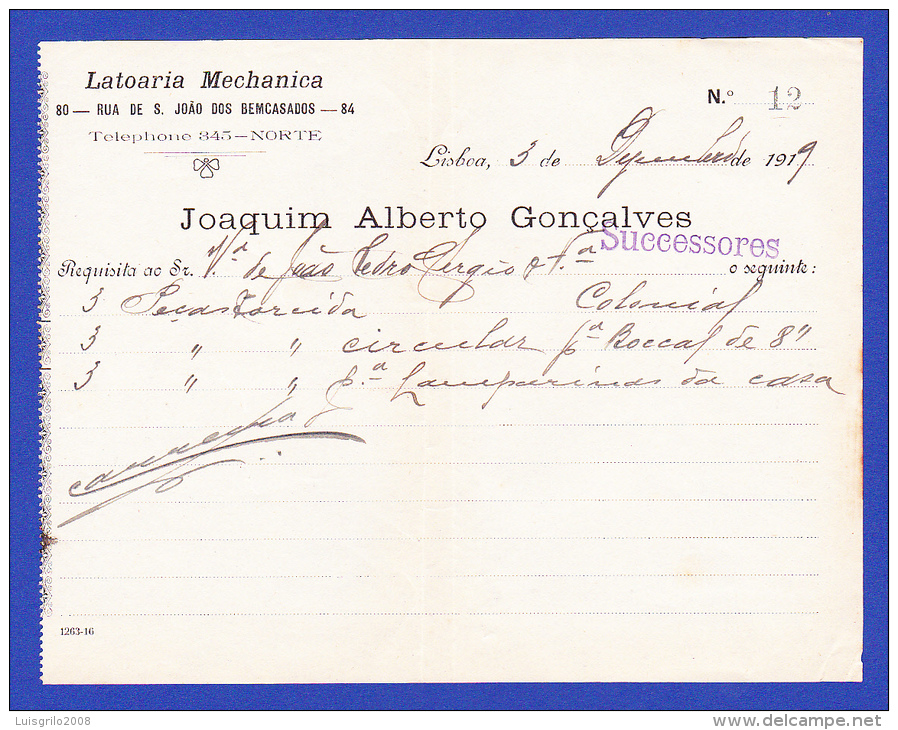 Latoaria Mechanica
80 — RUA DE S. JOÃO DOS BEMCASADOS — 84
Telephone 345 — NORTE
N.º 12
Lisboa, 3 de Dezembro de 1919
Joaquim Alberto Gonçalves
Successores
Requisita ao Sr. V.ª de João Pedro Sergio & F.ª o seguinte:
3 Peças Torcida Colonial
3 " " circular p.ª Boccal de 8"
3 " " p.ª Lamparinas da casa
1263-16
Luisgrilo2008
www.delcampe.net